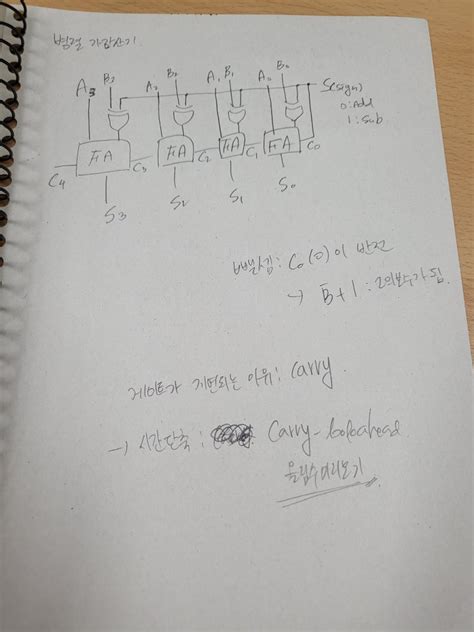 병렬 가감산기
A3 B3 A2 B2 A1 B1 A0 B0 S(sign)
0: Add
1: Sub
C4 FA C3 FA C2 FA C1 FA C0
S3 S2 S1 S0
뺄셈: C0(0)이 반전
→ B̅+1 : 2의보수가 됨.
게이트가 지연되는 이유: Carry.
→ 시간단축: Carry-lookahead
올림수미리보기